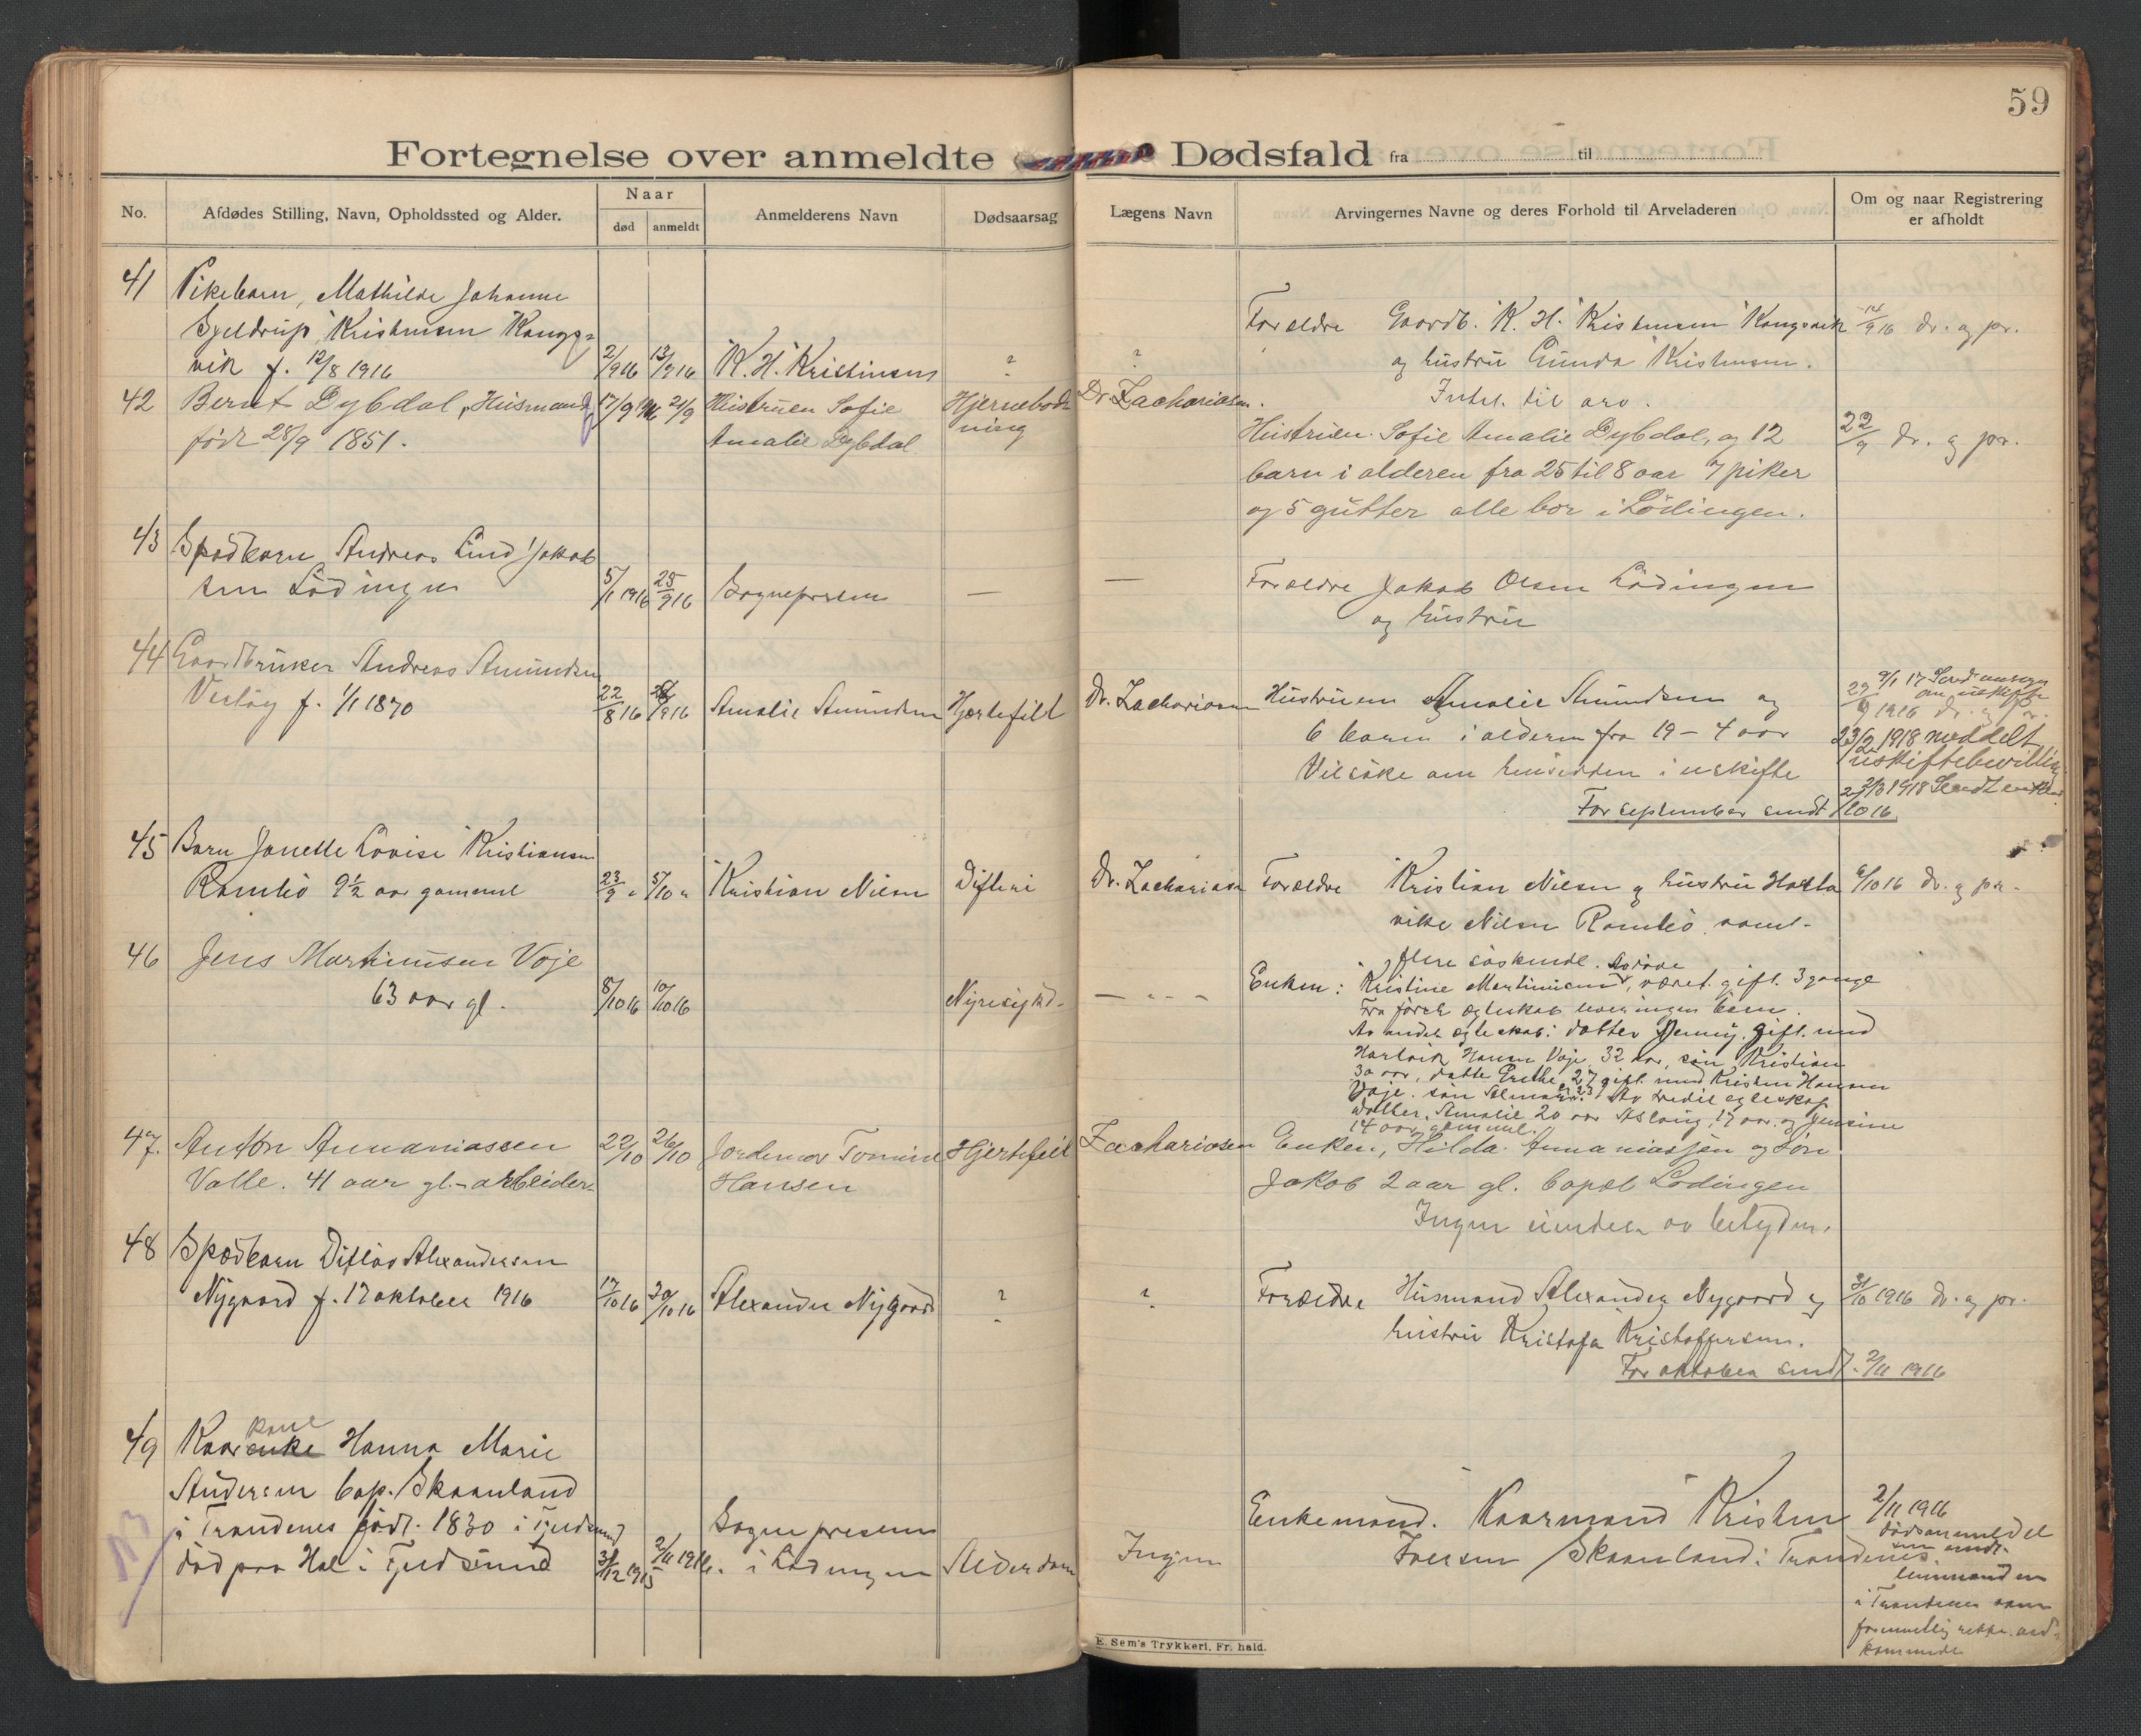 59
Fortegnelse over anmeldte Dødsfald fra til
No.
Afdødes Stilling, Navn, Opholdssted og Alder.
Naar
død
anmeldt
Anmelderens Navn
Dødsaarsag
Lægens Navn
Arvingernes Navne og deres Forhold til Arveladeren
Om og naar Registrering
er afholdt
41
Pikebarn, Mathilde Johanne
Kristensen Kongs-
vik f. 12/8 1916
2/9 16
13/9 16
K. H. Kristensen
?
?
Forældre Gaardb. K. H. Kristensen Kongsvik
og hustru Gunda Kristensen.
Intet til arv.
14/9 16 dr. og pr.
42
Bernt Dybdal, Husmand
født 28/9 1851.
17/9 1916
21/9
Hustruen Sofie
Amalie Dybdal
Hjerneblød
ning
Dr. Zachariasen.
Hustruen Sofie Amalie Dybdal, og 12
barn i alderen fra 25 til 8 aar 7 piker
og 5 gutter alle bor i Lödingen.
22/9 dr. og pr.
43
Spædbarn Andreas Lind Jakob
sen Lödingen
5/1 1916
25/9 16
Sogneprsten
—
—
Forældre Jakob Olsen Lödingen
og hustru
44
Gaardbruker Andreas Amundsen
Vestöy f. 1/1 1870
22/8 16
Amalie Amundsen
Hjertefeil
Dr. Zachariasen
Hustruen Amalie Amundsen og
6 barn i alderen fra 19 – 4 aar
Vil söke om hensidden i uskifte
For september sendt /10 16
9/1 17 Send ansøgn
om uskifte
29/9 1916 dr. og pr.
23/2 1918 meddelt
uskiftebevilling
1918 Sendt enken
45
Barn Janette Lovise Kristiansen
Rambö 9½ aar gammel
23/9 "
5/10 "
Kristian Nilsen
Difteri
Dr. Zachariasen
Forældre Kristian Nilsen og hustru Harta
vikke Nilsen Rambö samt
flere söskende.
6/10 16 dr. og pr.
46
Jens Martinussen Voje
63 aar gl.
8/10 16
10/10 16
Nyresygd.
— " — "
Enken: Kristine Martinussen, været gift 3 gange
Fra förste egteskab lever ingen barn.
Av andet egteskab: datter Jenny, gift med
Hartvik Hansen Voje 32 aar, sön Kristian
30 aar, datte Grethe 27 gift med Kristen Hansen
Voje. sön 23 Av tredie egteskap
datter Amalie 20 aar Aslaug 17 aar og Jensine
14 aar gammel.
47.
Anton Annaniassen
Valle. 41 aar gl. – arbeider
22/10
26/10
Jordemor Tomine
Hansen
Hjertefeil
Zachariasen
Enken, Hilda Annaniassen og sön
Jakob 2 aar gl. bopæl Lodingen
Ingen eiendele av betydn.
48
Spædbarn Alexandersen
Nygaard f. 17 oktober 1916
17/10 16
30/10 16
Alexander Nygaard
?
?
Forældre Husmand Alexander Nygaard og
hustru Kristofa Kristoffersen.
For oktober sendt 2/11 1916
31/10 1916 dr. og pr.
49
kone
Kaarenke Hanna Marie
Andersen bop. Skaanland
i Trondenes født 1830 i Tjeldsund
död paa Hol i Tjeldsund
31/12 1915
2/11 1916.
Sognepresten
i Lödingen
Alderdom
Ingen
Enkemand. Kaarmand Kristen
Iversen Skaanland i Trondenes.
2/11 1916
dödsanmeldel
sen sendt
lensmanden
i Trondenes som
formentlig rette ved-
kommende
E. Sem's Trykkeri, Fr.hald.